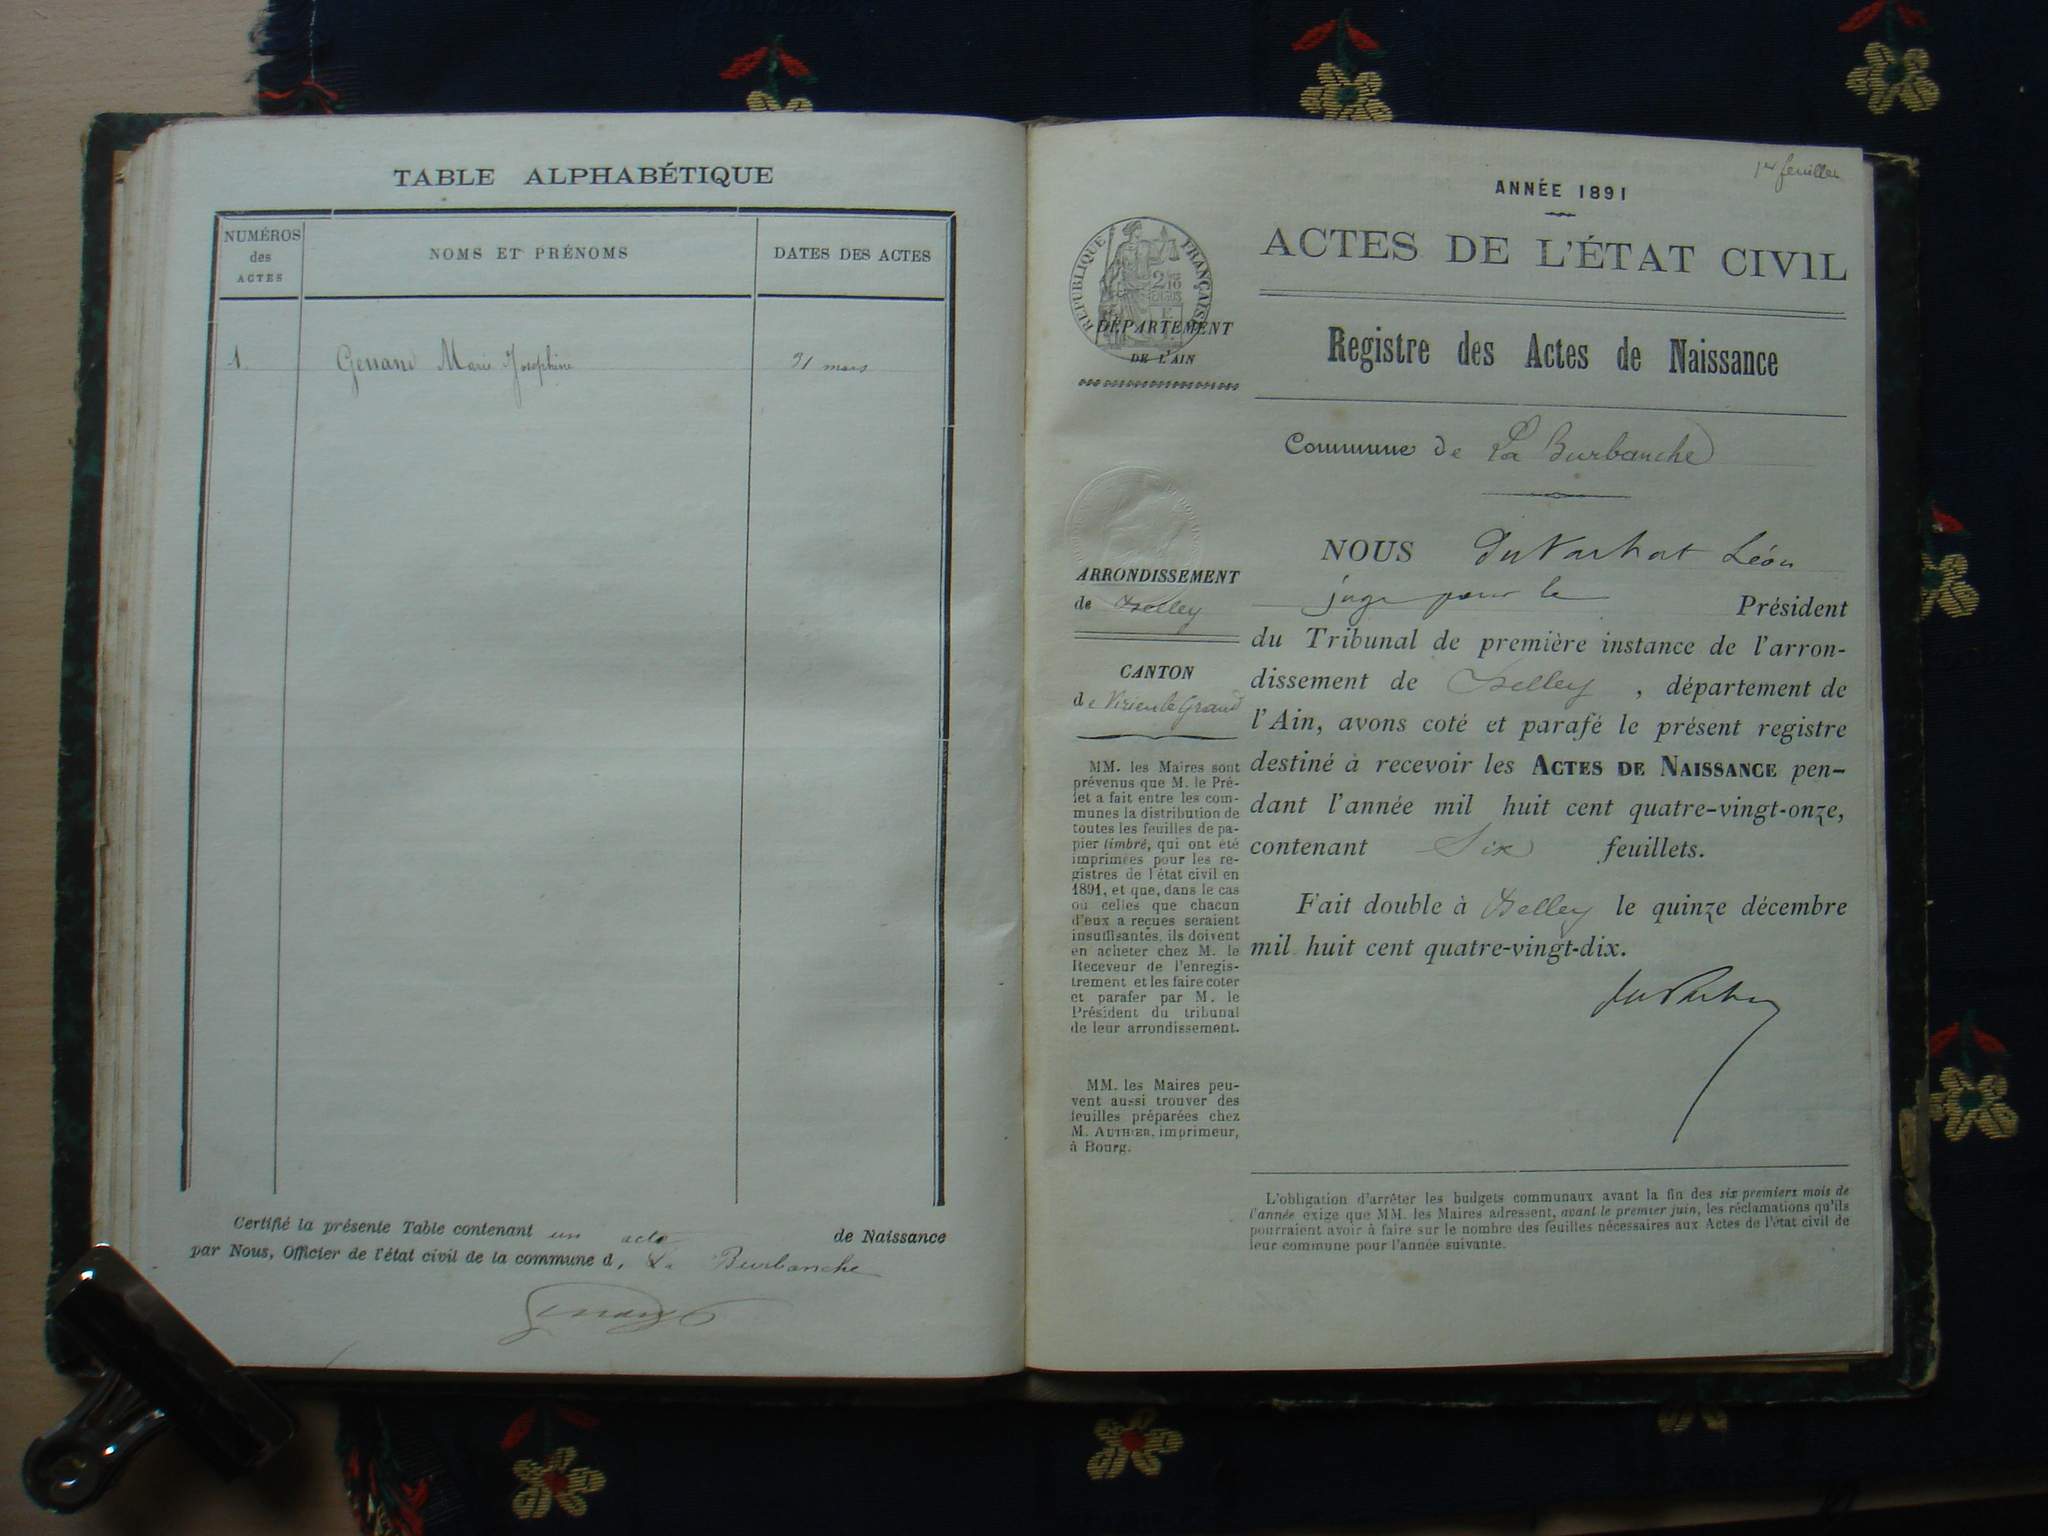 TABLE ALPHABÉTIQUE
NUMÉROS
des
ACTES
NOMS ET PRÉNOMS
DATES DES ACTES
1. Marie Joséphine 31 mars
Certifié la présente Table contenant un acte de Naissance
par Nous, Officier de l'état civil de la commune d. La Burbanche
1er feuillet
ANNÉE 1891
ACTES DE L'ÉTAT CIVIL
RÉPUBLIQUE FRANÇAISE
DÉPARTEMENT
DE L'AIN
Registre des Actes de Naissance
Commune de La Burbanche
ARRONDISSEMENT
de Belley
CANTON
de Virieu le Grand
MM. les Maires sont
prévenus que M. le Pré-
fet a fait entre les com-
munes la distribution de
toutes les feuilles de pa-
pier timbré, qui ont été
imprimées pour les re-
gistres de l'état civil en
1891, et que, dans le cas
où celles que chacun
d'eux a reçues seraient
insuffisantes, ils doivent
en acheter chez M. le
Receveur de l'enregis-
trement et les faire coter
et parafer par M. le
Président du tribunal
de leur arrondissement.
MM. les Maires peu-
vent aussi trouver des
feuilles préparées chez
M. AUTHIER, imprimeur,
à Bourg.
NOUS Léon
juge pour le Président
du Tribunal de première instance de l'arron-
dissement de Belley, département de
l'Ain, avons coté et parafé le présent registre
destiné à recevoir les ACTES DE NAISSANCE pen-
dant l'année mil huit cent quatre-vingt-onze,
contenant Six feuillets.
Fait double à Belley le quinze décembre
mil huit cent quatre-vingt-dix.
L'obligation d'arrêter les budgets communaux avant la fin des six premiers mois de
l'année exige que MM. les Maires adressent, avant le premier juin, les réclamations qu'ils
pourraient avoir à faire sur le nombre des feuilles nécessaires aux Actes de l'état civil de
leur commune pour l'année suivante.